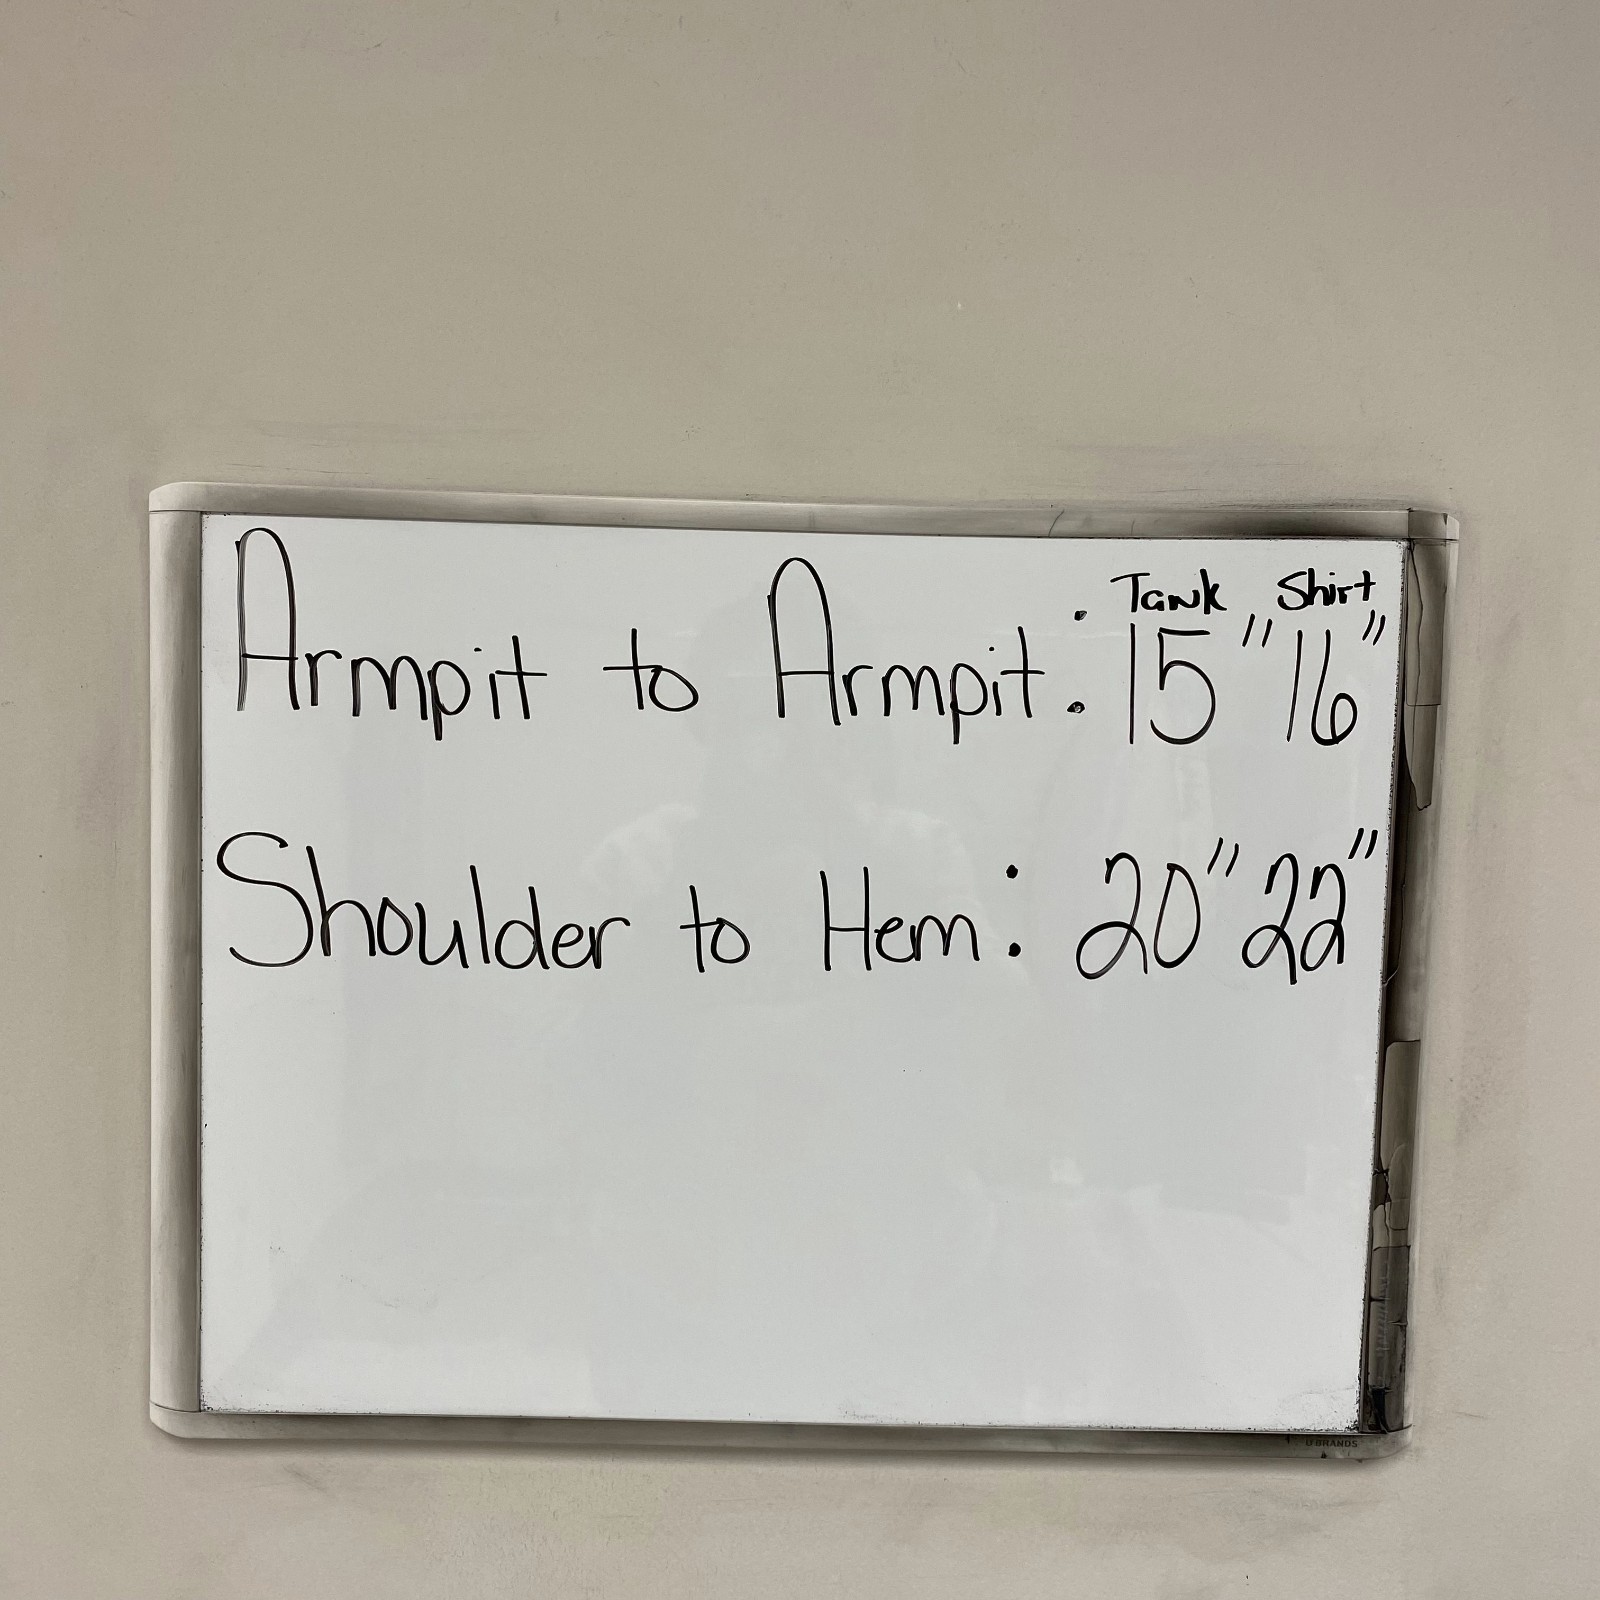 Tank Shirt
Armpit to Armpit: 15" 16"
Shoulder to Hem: 20" 22"
BRANDS